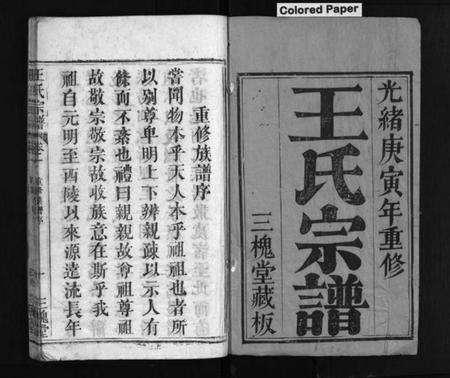 Colored Paper
光緒庚寅年重修
王氏宗譜
三槐堂藏板
重修族譜序
嘗聞物本乎天人本乎祖祖也者所
以别尊卑明上下辨親疎以示人有
條而不紊也禮曰親親故尊祖尊祖
故敬宗敬宗故收族意在斯乎我
祖自元明至西陵以來源遠流長年
王氏宗譜
三槐堂